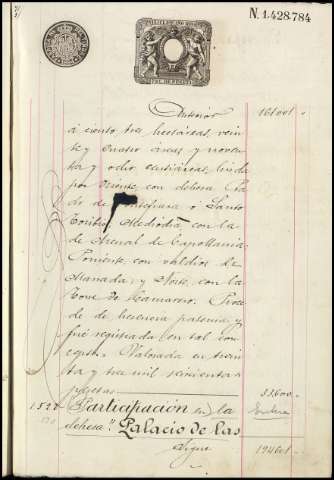 N. 1.428.784
Anterior 161001
á ciento tres hectáreas, vein
te y cuatro áreas y noven
ta y ocho centiáreas, linda
por Oriente con dehesa
de ó Santo
Toribio Mediodía con la
de Arenal de
Poniente con valdios de
Granada; y Norte, con la
Torre de Proce
de de herencia paterna y
fué registrada en tal con
cepto. Valorada en trein
ta y tres mil seiscientas
pesetas 33600
152 Participación en la
dehesa "Palacio de las
Sigue 194601